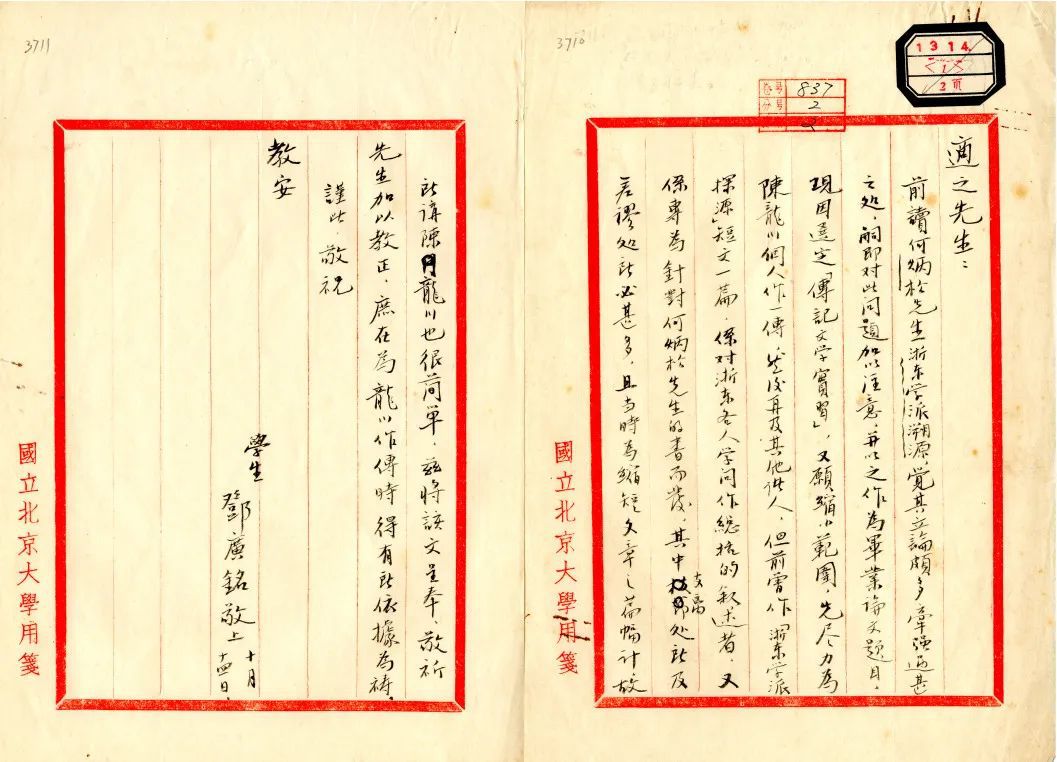 3710
1314
2页
卷号 837
分号 2
適之先生：
前讀何炳松先生浙东学派溯源，覺其立論頗多牽强過甚
之処，嗣即对此问題加以注意，并以之作為畢業論文題目。
現因選定「傳記文学實習」，又願縮小範圍，先尽力為
陳龍川個人作一傳，然後再及其他诸人，但前曾作「浙东学派
探源」短文一篇，係对浙东各人学问作総括的叙述者，又
係專為針對何炳松先生的書而發，其中支離処所及
差謬処所必甚多，且当時為縮短文章之篇幅計故
國立北京大學用箋
3711
所講陳龍川也很简单，兹将該文呈奉，敬祈
先生加以教正，庶在為龍川作傳時得有所依據為祷。
謹此，敬祝
教安
學生
鄧廣銘敬上 十月
十四日。
國立北京大學用箋